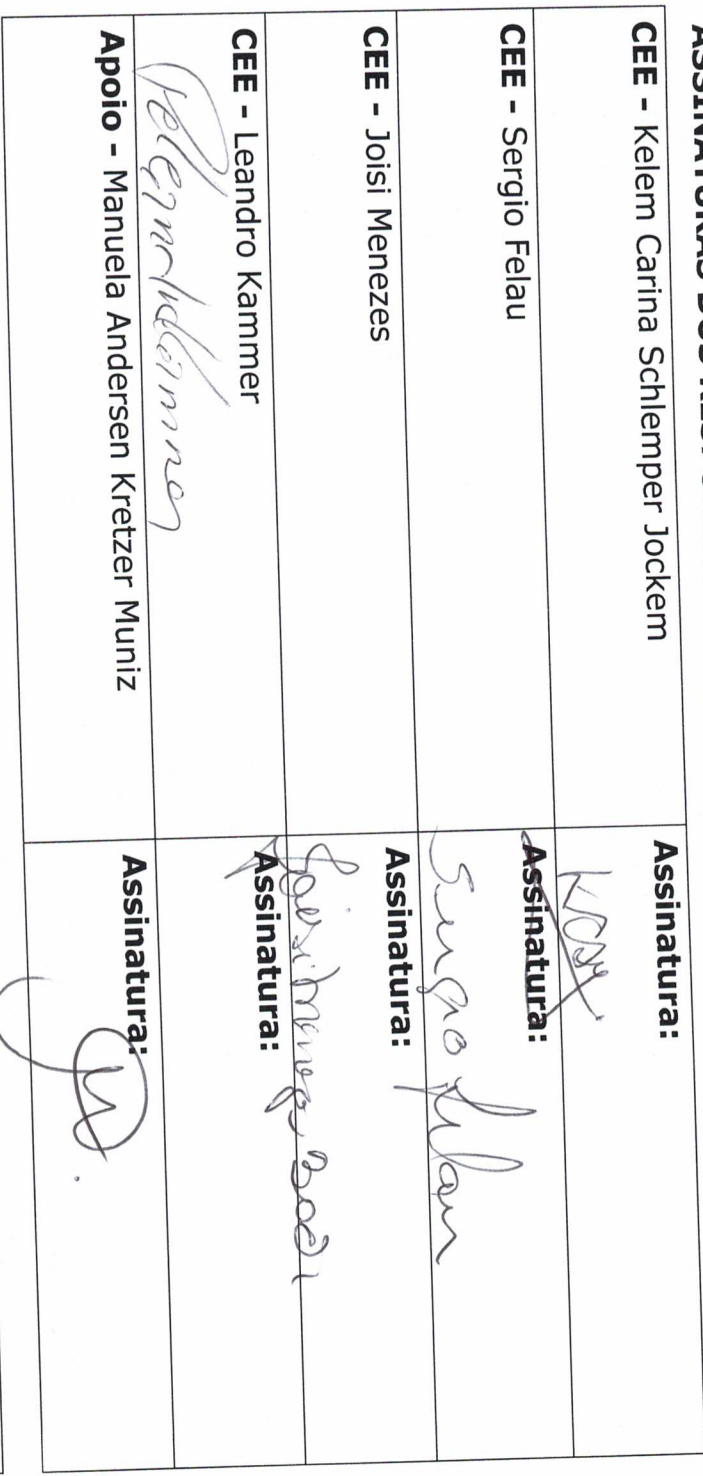 ASSINATURAS DOS
CEE - Kelem Carina Schlemper Jockem
Assinatura:
CEE - Sergio Felau
Assinatura:
Sergio Felau
CEE - Joisi Menezes
Assinatura:
CEE - Leandro Kammer
Assinatura:
Apoio - Manuela Andersen Kretzer Muniz
Assinatura: